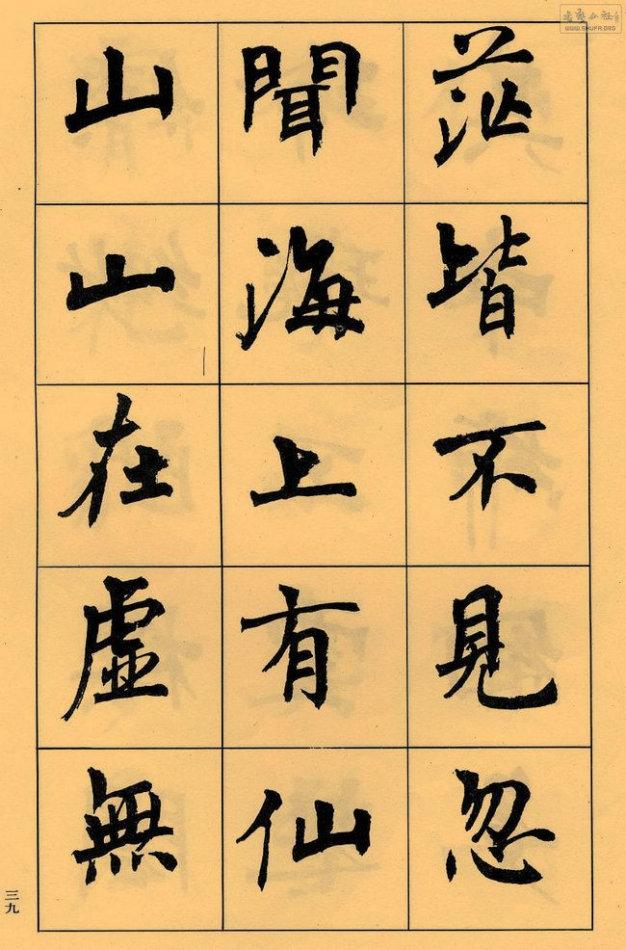 茫皆不見忽
聞海上有仙
山山在虛無
三九
WWW.SHUFA.ORG